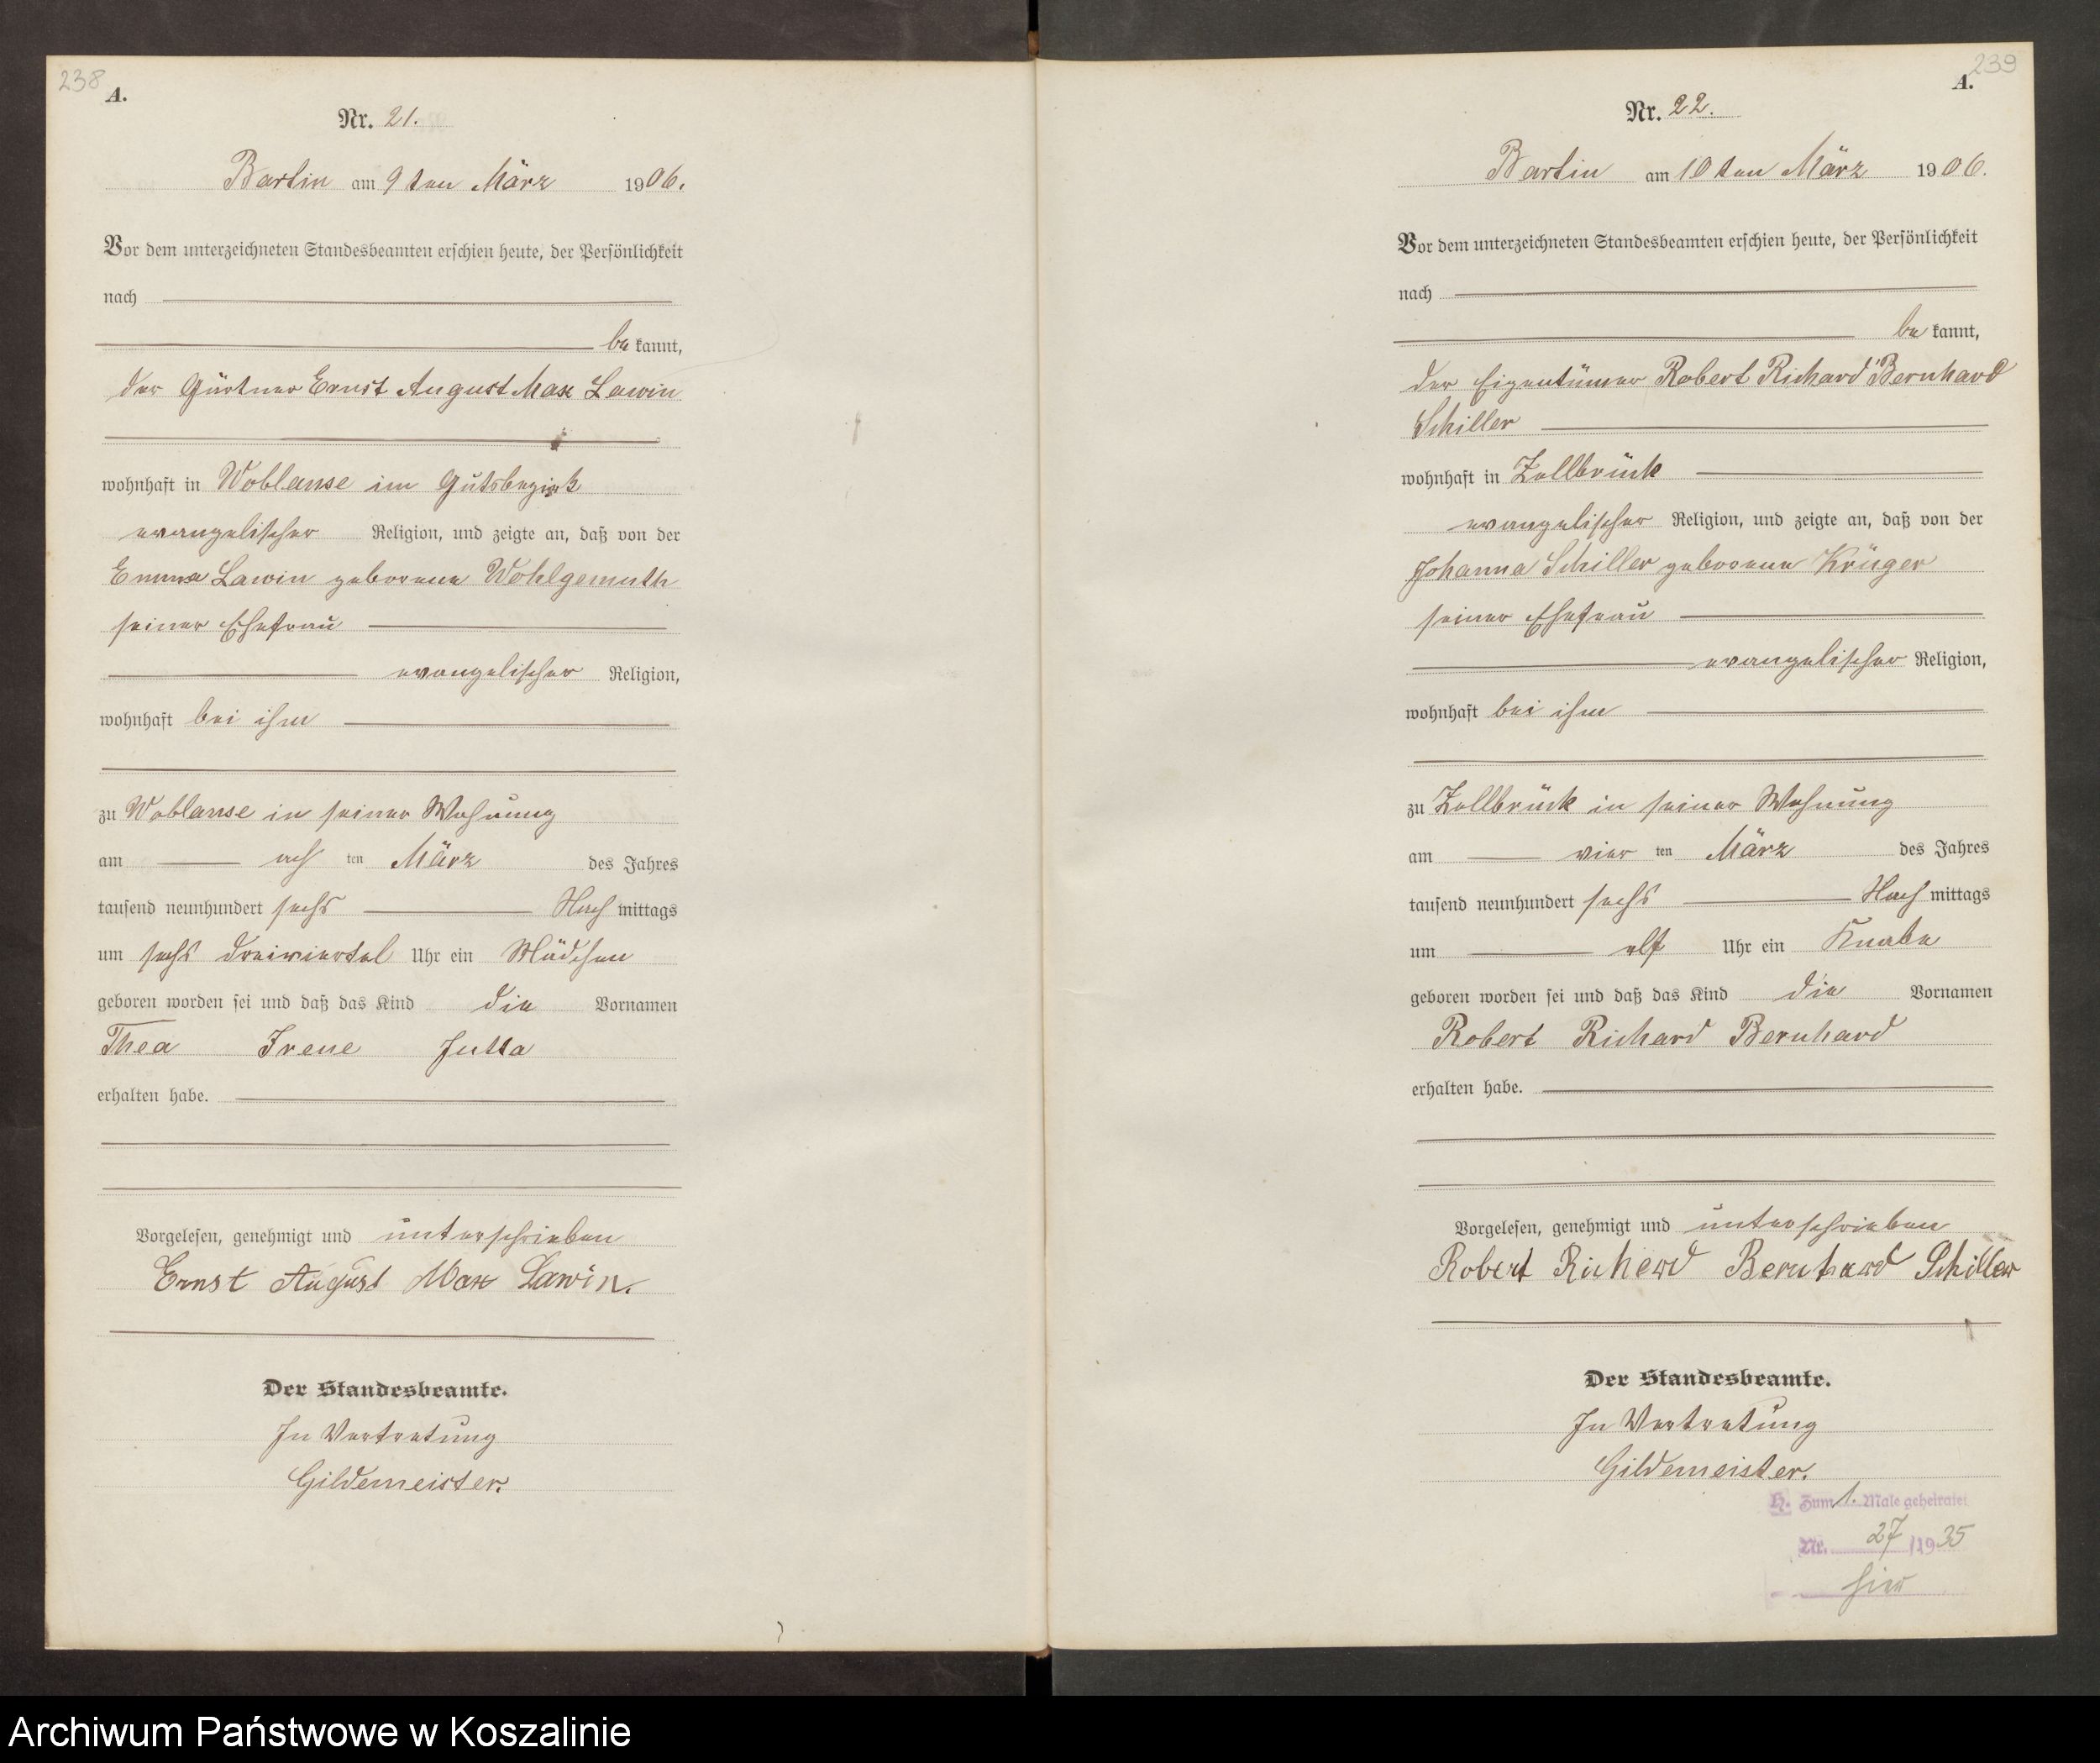 238
A.
Nr. 21.
Bartin am 9ten März 1906.
Vor dem unterzeichneten Standesbeamten erschien heute, der Persönlichkeit
nach
be kannt,
der Gärtner Ernst August Max Lawin
wohnhaft in Woblanse im Gutsbezirk
evangelischer Religion, und zeigte an, daß von der
Emma Lawin geborene Wohlgemuth
seiner Ehefrau
evangelischer Religion,
wohnhaft bei ihm
zu Woblanse in seiner Wohnung
am ach ten März des Jahres
tausend neunhundert sechs Nach mittags
um sechs dreiviertel Uhr ein Mädchen
geboren worden sei und daß das Kind die Vornamen
Thea Irene Jutta
erhalten habe.
Vorgelesen, genehmigt und unterschrieben
Ernst August Max Lawin.
Der Standesbeamte.
In Vertretung
Gildemeister.
239
A.
Nr. 22.
Bartin am 10ten März 1906.
Vor dem unterzeichneten Standesbeamten erschien heute, der Persönlichkeit
nach
be kannt,
der Eigentümer Robert Richard Bernhard
Schiller
wohnhaft in Zollbrück
evangelischer Religion, und zeigte an, daß von der
Johanna Schiller geborene Krüger
seiner Ehefrau
evangelischer Religion,
wohnhaft bei ihm
zu Zollbrück in seiner Wohnung
am vier ten März des Jahres
tausend neunhundert sechs Nach mittags
um elf Uhr ein Knabe
geboren worden sei und daß das Kind die Vornamen
Robert Richard Bernhard
erhalten habe.
Vorgelesen, genehmigt und unterschrieben
Robert Richard Bernhard Schiller
Der Standesbeamte.
In Vertretung
Gildemeister.
H. Zum 1. Male geheiratet
Nr. 27/1935
hier
Archiwum Państwowe w Koszalinie